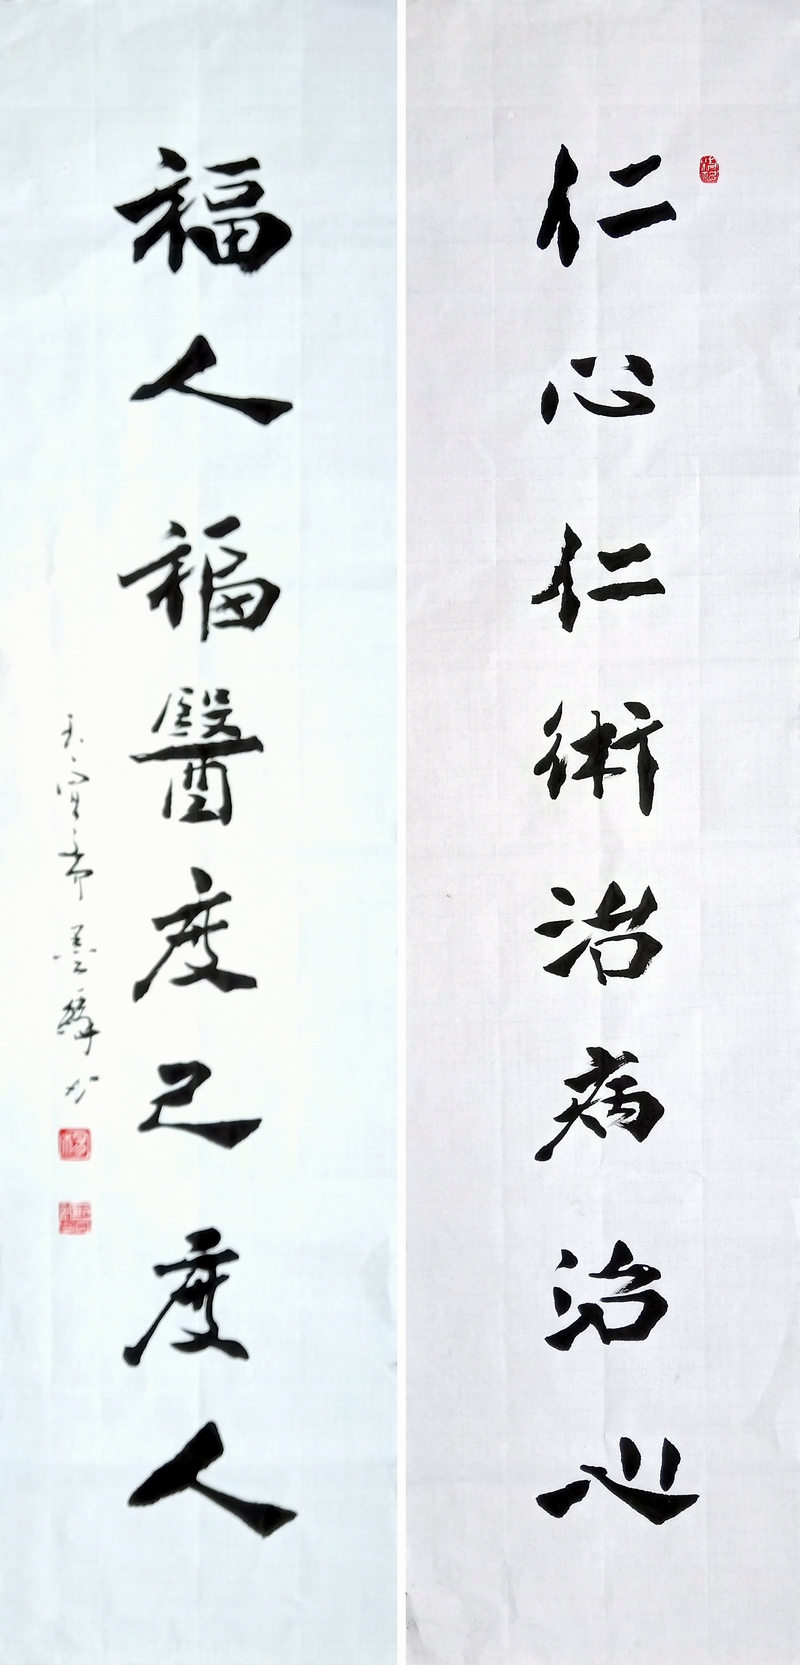 仁心仁術治病治心
福人福醫度己度人